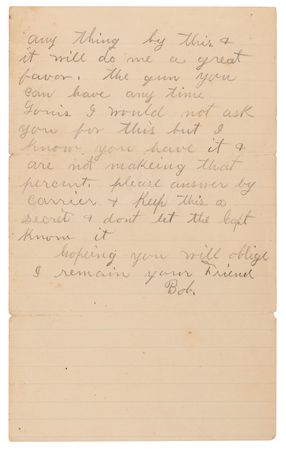 any thing by this &
it will do me a great
favor. the gun you
can have any time
I would not ask
you for this but I
know you have it &
are not makeing that
percent. please answer by
carrier & Keep this a
secret & dont let the Capt
know it
hopeing you will oblige
I remain your Friend
Bob.